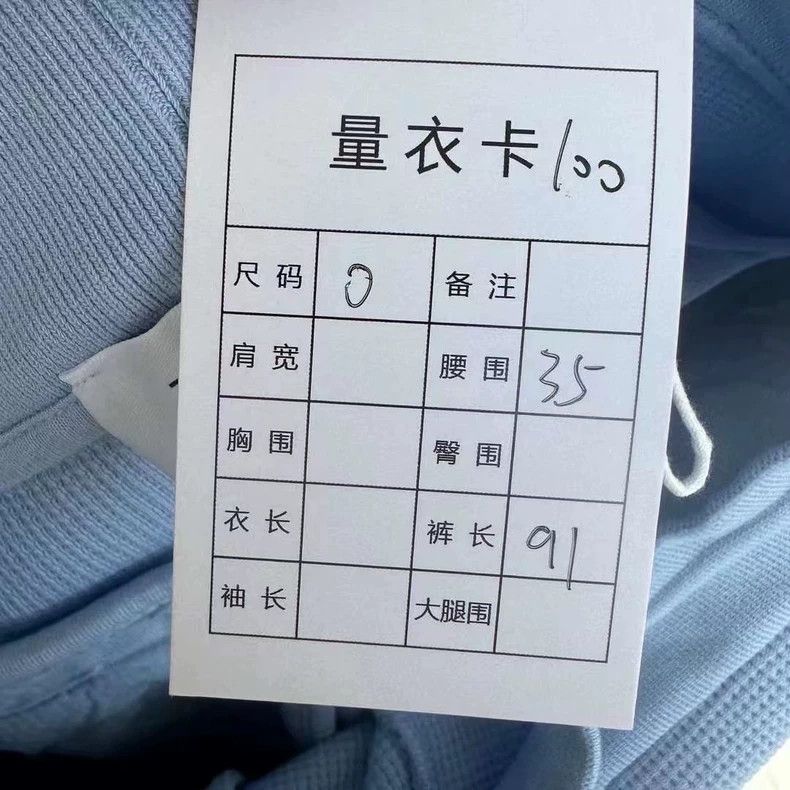 量衣卡 100
尺码 0 备注
肩宽 腰围 35
胸围 臀围
衣长 裤长 91
袖长 大腿围